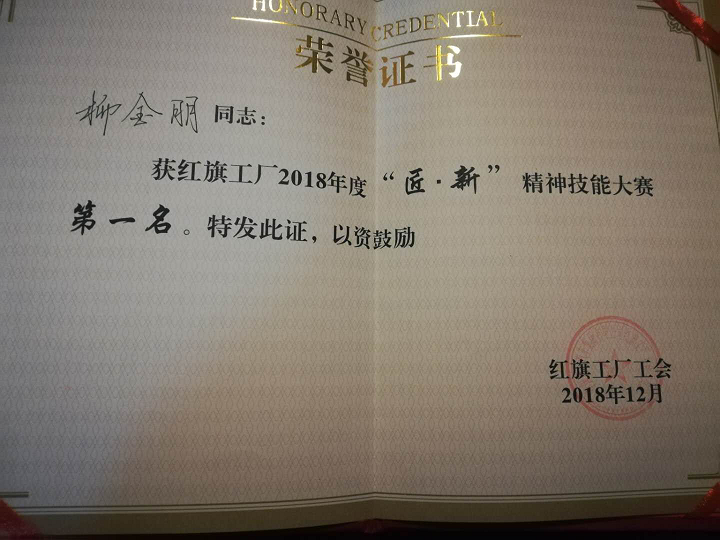 HONORARY CREDENTIAL
荣誉证书
柳金朋 同志：
获红旗工厂2018年度“匠·新”精神技能大赛
第一名。特发此证，以资鼓励
红旗工厂工会
2018年12月